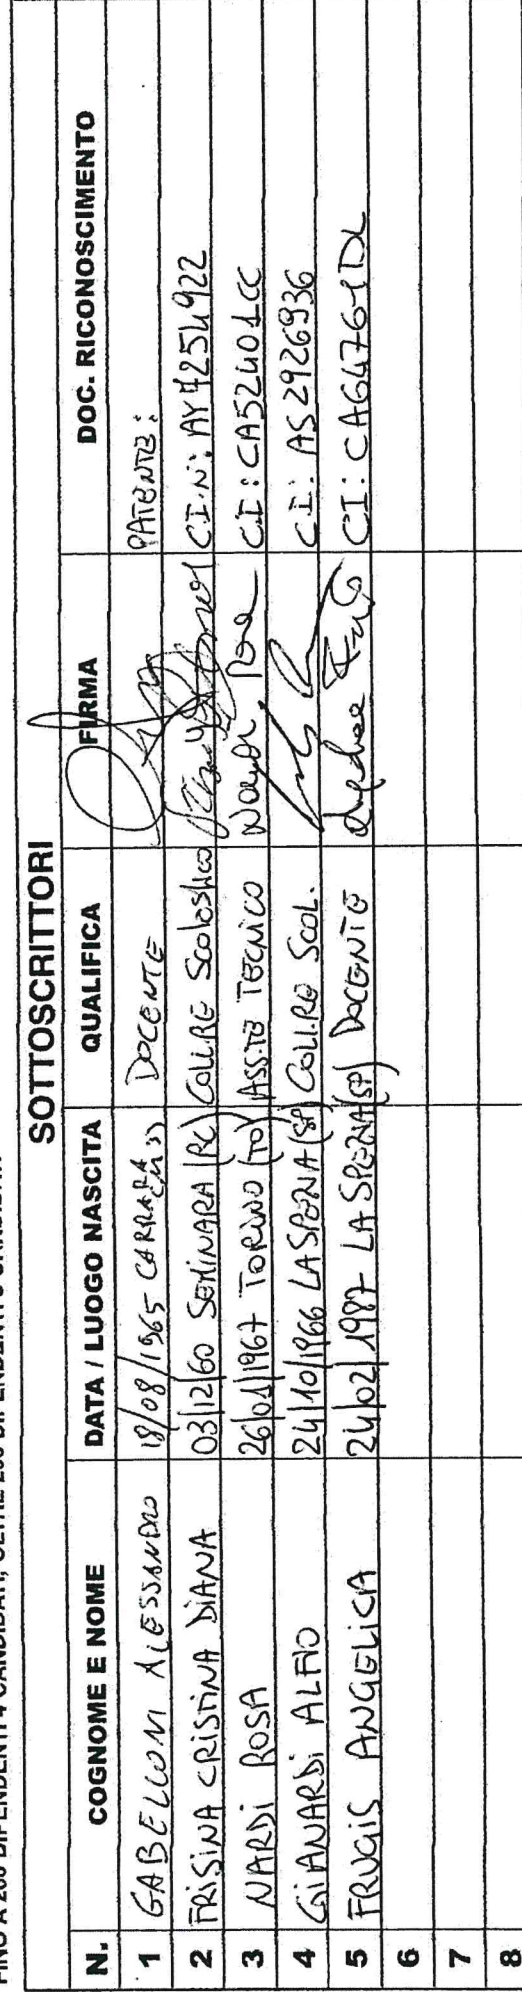 FINO A 200 DIPENDENTI 4 CANDIDATI, OLTRE 200 DIPENDENTI 6 CANDIDATI
SOTTOSCRITTORI
N. COGNOME E NOME DATA / LUOGO NASCITA QUALIFICA FIRMA DOC. RICONOSCIMENTO
1 GABELLONI ALESSANDRO 18/08/1965 CARRARA (MS) DOCENTE PATENTE:
2 FRISINA CRISTINA DIANA 03/12/60 SEMINARA (RC) COLL.RE Scolastico C.I. N: AY4254922
3 NARDI ROSA 26/01/1967 TORINO (TO) ASS.TE TECNICO Nardi Rosa C.I: CA52401CC
4 GIANARDI ALFIO 24/10/1966 LA SPEZIA (SP) COLL.RE SCOL. C.I: AS2926936
5 FRUGIS ANGELICA 24/02/1987 LA SPEZIA (SP) DOCENTE CI: CA64761DL
6
7
8